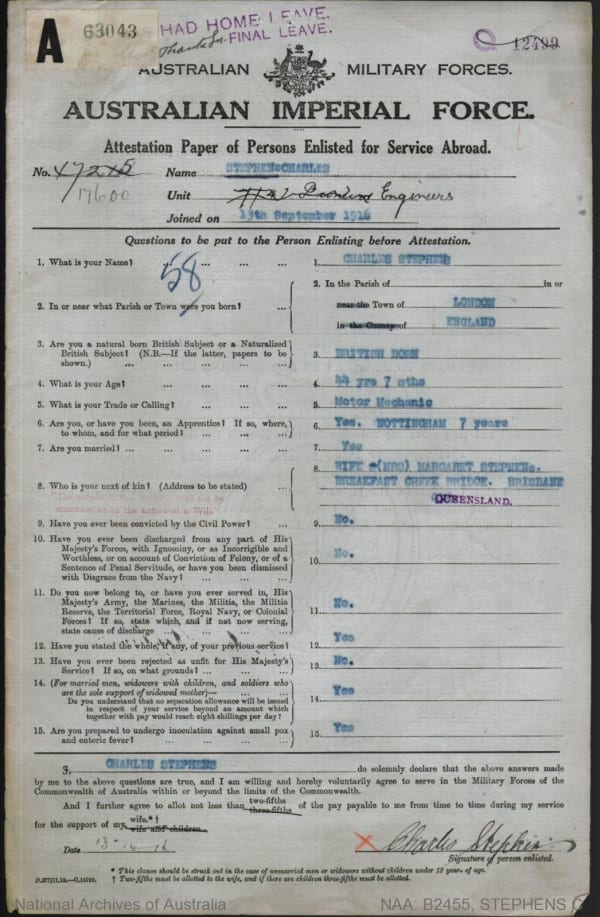 A 63043
HAD HOME LEAVE.
FINAL LEAVE.
12499
AUSTRALIAN MILITARY FORCES.
AUSTRALIAN IMPERIAL FORCE.
Attestation Paper of Persons Enlisted for Service Abroad.
No. 17600
Name STEPHENS CHARLES
Unit Engineers
Joined on 13th September 1916
Questions to be put to the Person Enlisting before Attestation.
1. What is your Name? ... ... ... 1. CHARLES STEPHENS
58
2. In or near what Parish or Town were you born? ... 2. In the Parish of in or
near the Town of LONDON
in the County of ENGLAND
3. Are you a natural born British Subject or a Naturalized
British Subject? (N.B.—If the latter, papers to be
shown.) ... ... ... ... 3. BRITISH BORN
4. What is your Age? ... ... ... 4. 44 yrs 7 mths
5. What is your Trade or Calling? ... ... ... 5. Motor Mechanic
6. Are you, or have you been, an Apprentice? If so, where,
to whom, and for what period? ... ... ... 6. Yes. NOTTINGHAM 7 years
7. Are you married? ... ... ... ... 7. Yes
8. Who is your next of kin? (Address to be stated) ... 8. WIFE (MRS) MARGARET STEPHENS.
BREAKFAST CREEK BRIDGE. BRISBANE
QUEENSLAND.
9. Have you ever been convicted by the Civil Power? ... 9. No.
10. Have you ever been discharged from any part of His
Majesty's Forces, with Ignominy, or as Incorrigible and
Worthless, or on account of Conviction of Felony, or of a
Sentence of Penal Servitude, or have you been dismissed
with Disgrace from the Navy? ... ... ... 10. No.
11. Do you now belong to, or have you ever served in, His
Majesty's Army, the Marines, the Militia, the Militia
Reserve, the Territorial Force, Royal Navy, or Colonial
Forces? If so, state which, and if not now serving,
state cause of discharge ... ... ... 11. No.
12. Have you stated the whole, if any, of your previous service? 12. Yes
13. Have you ever been rejected as unfit for His Majesty's
Service? If so, on what grounds? ... ... 13. No.
14. (For married men, widowers with children, and soldiers who
are the sole support of widowed mother)— ... ...
Do you understand that no separation allowance will be issued
in respect of your service beyond an amount which
together with pay would reach eight shillings per day? 14. Yes
15. Are you prepared to undergo inoculation against small pox
and enteric fever? ... ... ... ... 15. Yes
I, CHARLES STEPHENS do solemnly declare that the above answers made
by me to the above questions are true, and I am willing and hereby voluntarily agree to serve in the Military Forces of the
Commonwealth of Australia within or beyond the limits of the Commonwealth.
And I further agree to allot not less than two-fifths three-fifths of the pay payable to me from time to time during my service
for the support of my wife.*† wife and children.
Date
Charles Stephens
Signature of person enlisted.
* This clause should be struck out in the case of unmarried men or widowers without children under 18 years of age.
† Two-fifths must be allotted to the wife, and if there are children three-fifths must be allotted.
National Archives of Australia
NAA: B2455, STEPHENS C